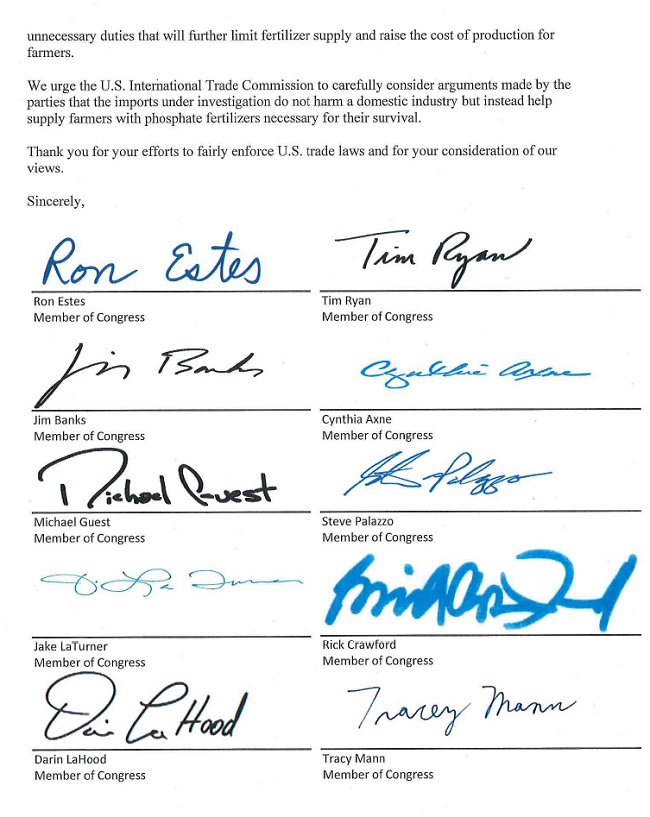 unnecessary duties that will further limit fertilizer supply and raise the cost of production for
farmers.
We urge the U.S. International Trade Commission to carefully consider arguments made by the
parties that the imports under investigation do not harm a domestic industry but instead help
supply farmers with phosphate fertilizers necessary for their survival.
Thank you for your efforts to fairly enforce U.S. trade laws and for your consideration of our
views.
Sincerely,
Ron Estes
Tim Ryan
Ron Estes
Tim Ryan
Member of Congress
Member of Congress
Jim Banks
Cynthia Axne
Jim Banks
Cynthia Axne
Member of Congress
Member of Congress
Michael Guest
Palazzo
Michael Guest
Steve Palazzo
Member of Congress
Member of Congress
Jake LaTurner
Rick Crawford
Member of Congress
Member of Congress
LaHood
Tracey Mann
Darin LaHood
Tracy Mann
Member of Congress
Member of Congress